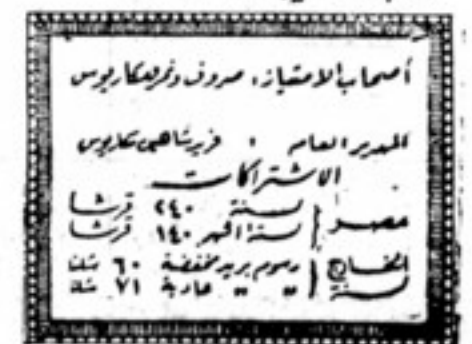 أصحاب الامتياز : صروف ونمر ومكاريوس
المدير العام : فريد شاهين مكاريوس
الاشتراكات
مصر { لسنة ٢٤٠ قرشا
لستة اشهر ١٤٠ قرشا
الخارج { رسوم بريد مخفضة ٦٠ شلنا
لسنة { " " عادية ٧١ شلنا